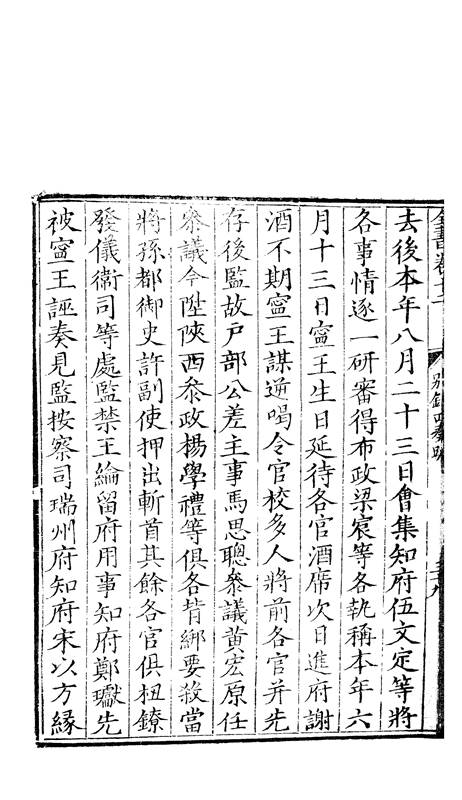 去後本年八月二十三日會集知府伍文定等將
各事情逐一研審得布政梁宸等各執稱本年六
月十三日寧王生日延待各官酒席次日進府謝
酒不期寧王謀逆喝令官校多人將前各官并先
存後監故戸部公差主事馬思聰叅議黃宏原任
叅議今陞陝西叅政楊學禮等俱各背綁要殺當
將孫都御史許副使押出斬首其餘各官俱杻鐐
發儀衛司等處監禁王綸留府用事知府鄭瓛先
被寧王誣奏見監按察司瑞州府知府宋以方縁